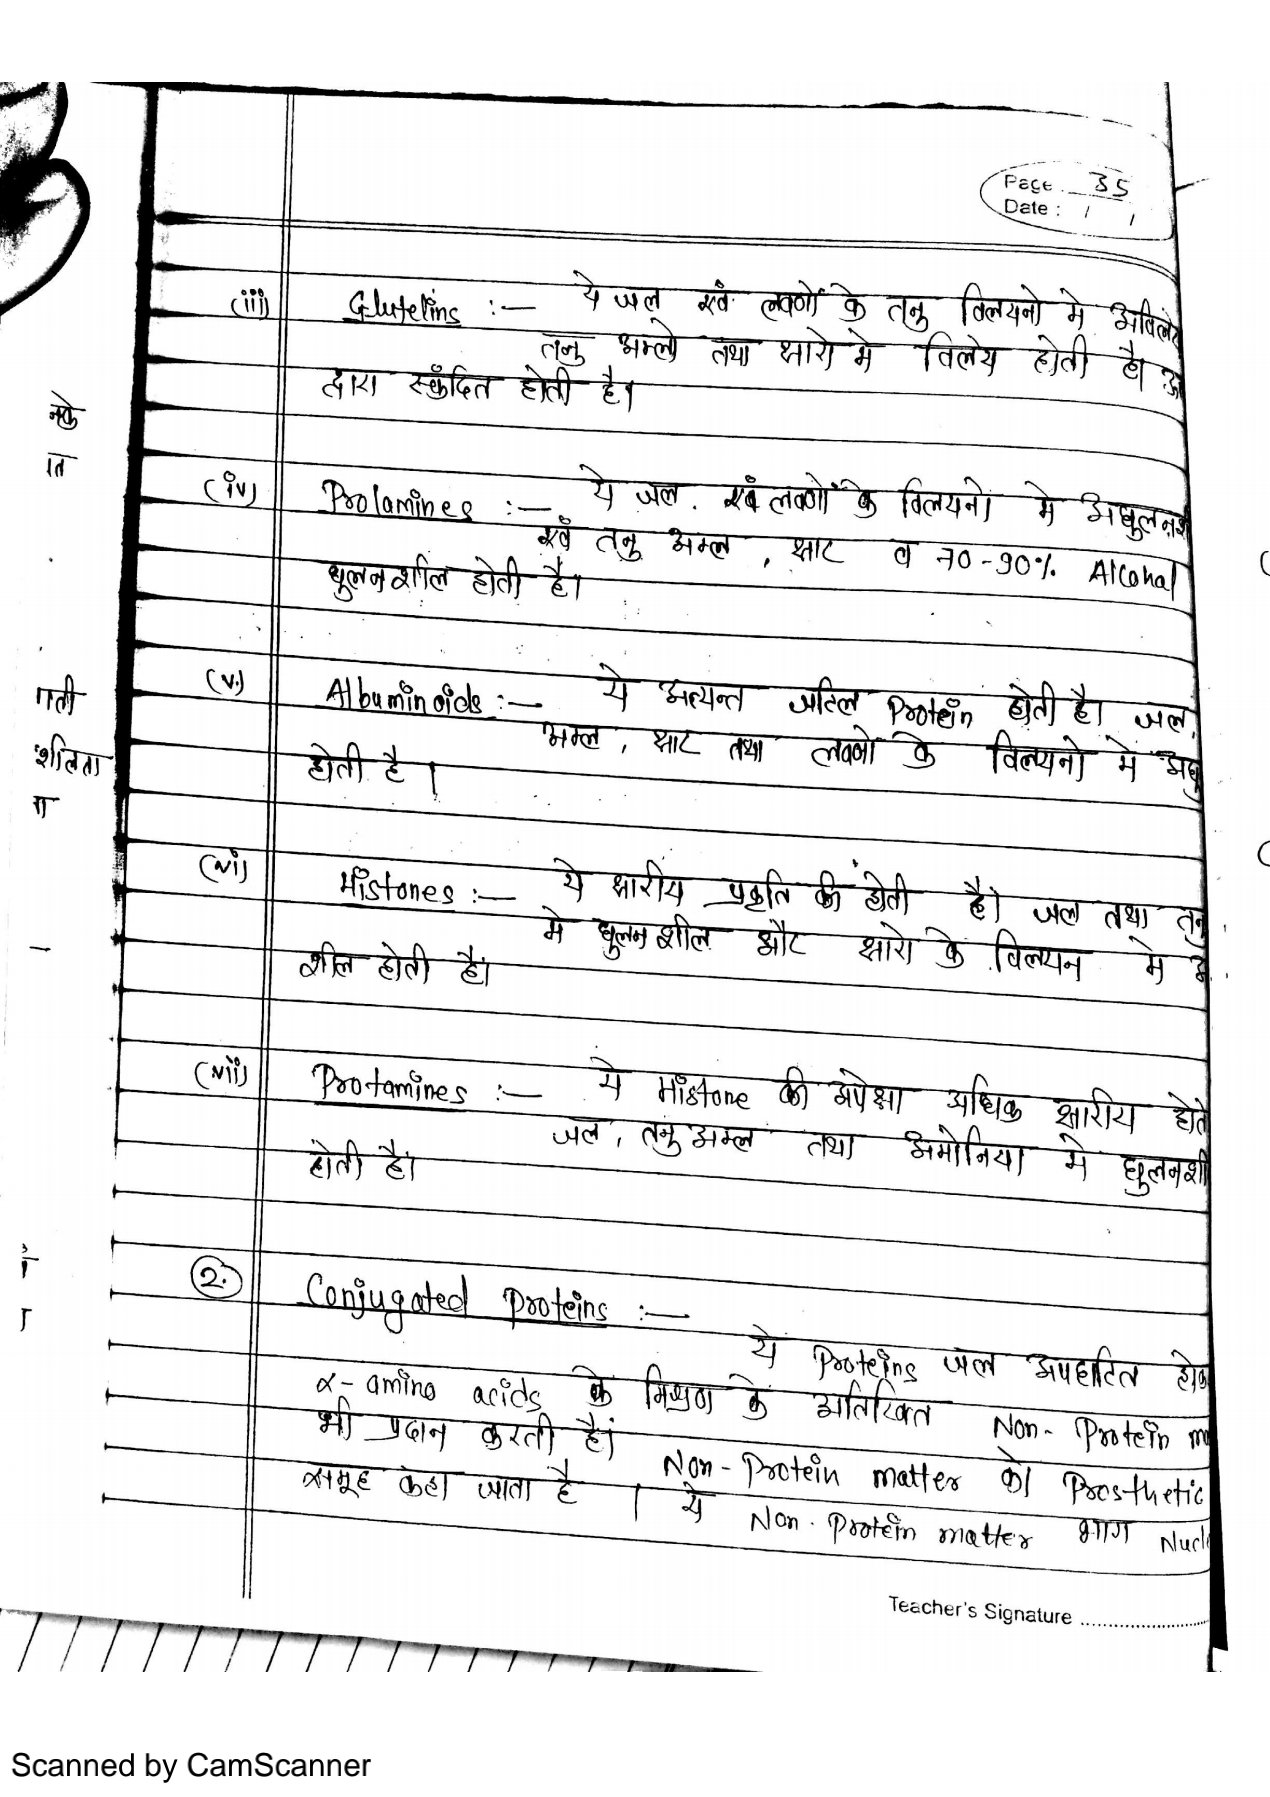 Page : 35
Date : / /
(iii) Glutelins :— ये जल एवं लवणों के तनु विलयनो मे अविलेय
तनु अम्लो तथा क्षारो मे विलेय होती है।
द्वारा स्कंदित होती है।
(iv) Prolamines :— ये जल. एवं लवणों के विलयनो मे अघुलनश
एवं तनु अम्ल , क्षार व 70-90% Alcohal
घुलनशील होती है।
(v.) Albuminoids :— ये अत्यन्त जटिल Protein होती है। जल,
अम्ल , क्षार तथा लवणों के विलयनो मे अघु
होती है।
(vi) Histones :— ये क्षारीय प्रकृति की होती है। जल तथा तनु
मे घुलनशील और क्षारो के विलयन मे अ
शील होती है।
(vii) Protamines :— ये Histone की अपेक्षा अधिक क्षारीय होते
जल , तनु अम्ल तथा अमोनिया मे घुलनशी
होती है।
2. Conjugated Proteins :—
ये Proteins जल अपघटित होक
α- amino acids के मिश्रण के अतिरिक्त Non- Protein ma
भी प्रदान करती है। Non-Protein matter को Prosthetic
समूह कहा जाता है । ये Non-Protein matter भाग Nucle
Teacher's Signature
नके
ात
ाती
शीलता
ा
Scanned by CamScanner